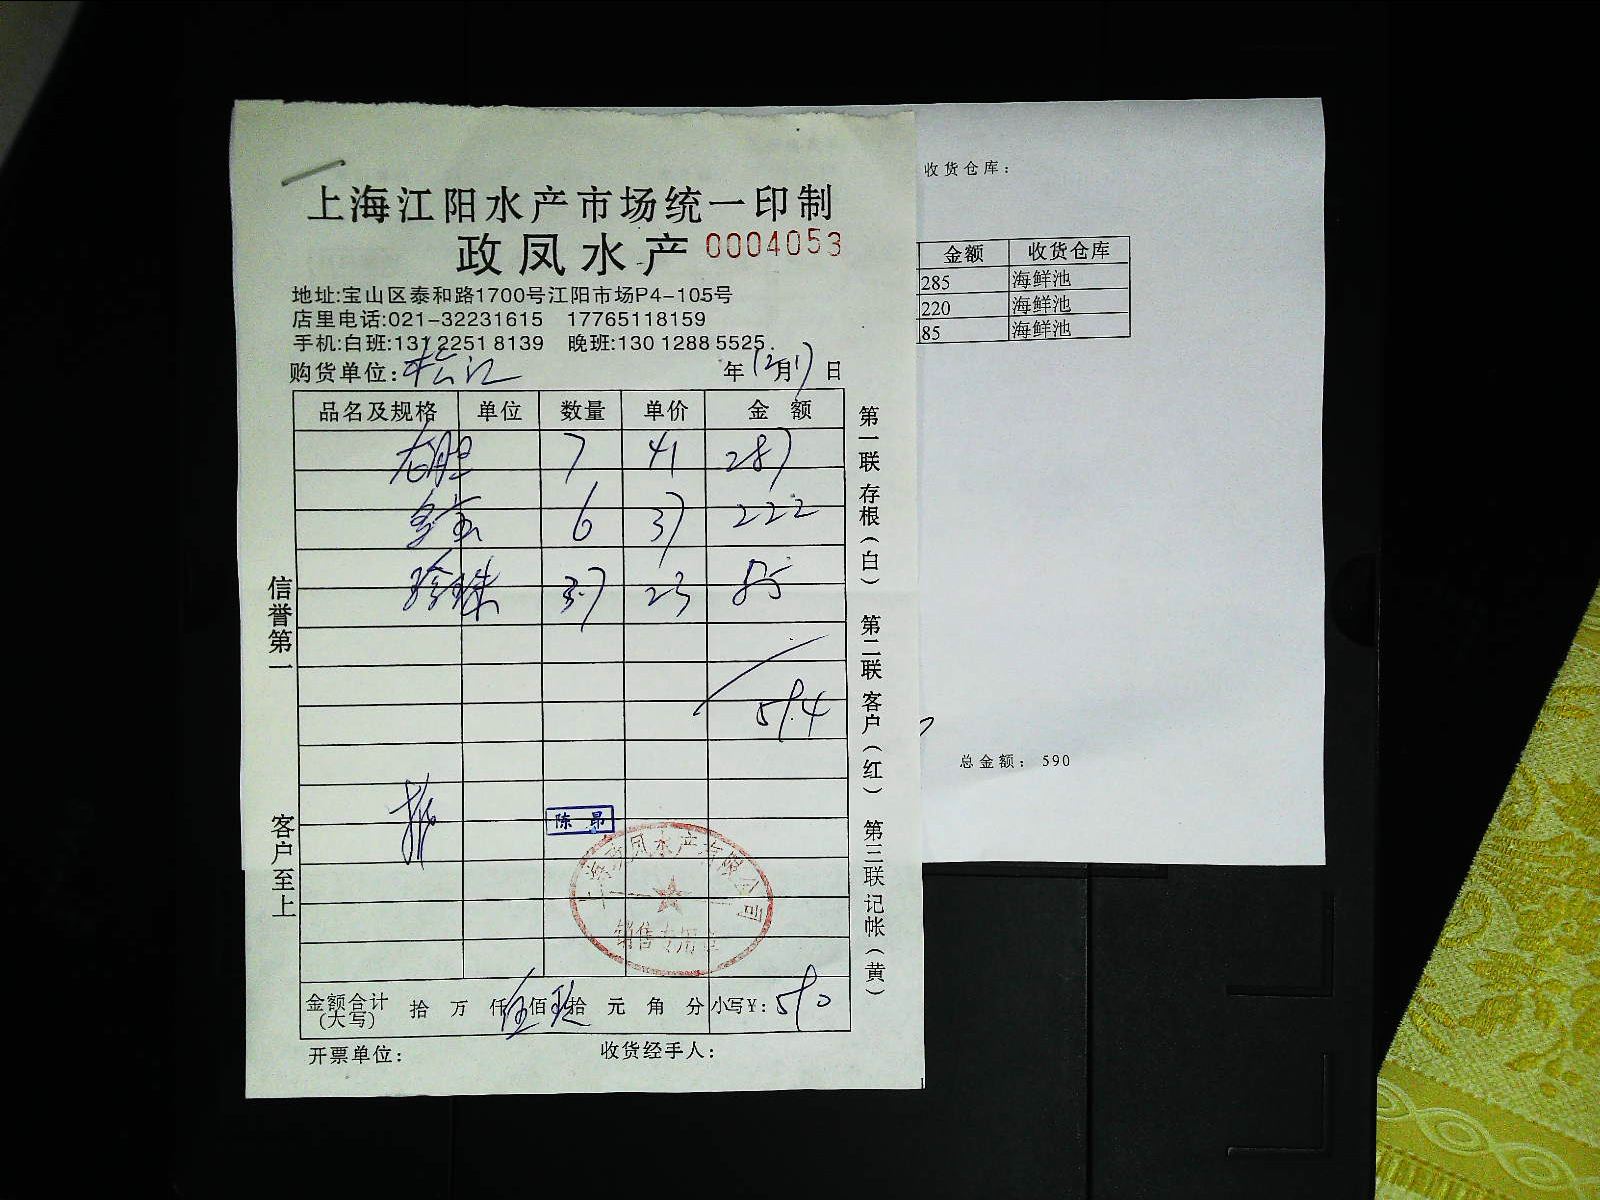 上海江阳水产市场统一印制
政凤水产 0004053
地址:宝山区泰和路1700号江阳市场P4-105号
店里电话:021-32231615 17765118159
手机:白班:131 2251 8139 晚班:130 1288 5525.
购货单位: 松江 年12月17日
品名及规格 单位 数量 单价 金 额
龙胆 7 41 287
多宝 6 37 222
珍珠 3.7 23 85
594
陈昂
上海政凤水产有限公司
销售专用章
金额合计(大写) 拾 万 仟 伍佰 玖拾 元 角 分 小写¥: 590
开票单位: 收货经手人:
信誉第一
客户至上
第一联 存根(白) 第二联 客户(红) 第三联 记帐(黄)
收货仓库:
金额 收货仓库
285 海鲜池
220 海鲜池
85 海鲜池
总金额: 590